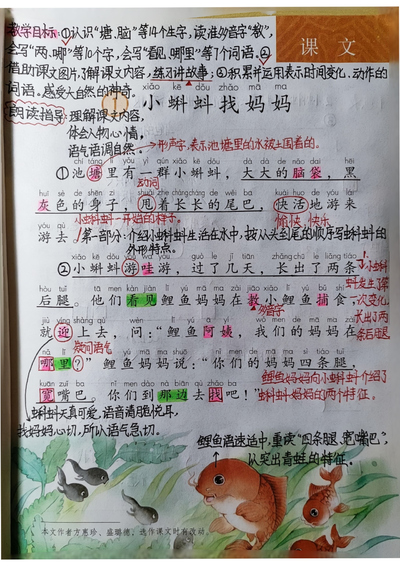 教学目标:①认识"塘、脑"等14个生字,读准多音字"教",
课文
会写"两、哪"等10个字,会写"看见、哪里"等7个词语。②
借助课文图片,了解课文内容,练习讲故事;④积累并运用表示时间变化、动作的
词语,感受大自然的神奇。
xiǎo kē dǒu zhǎo mā ma
1 小蝌蚪找妈妈
朗读指导:理解课文内容,
体会人物心情,
语气语调自然。
→形声字,表示池塘里的水被土围着的。
chí táng lǐ yǒu yì qún xiǎo kē dǒu dà dà de nǎo dai hēi
①池塘里有一群小蝌蚪,大大的脑袋,黑
动词
huī sè de shēn zi shuǎi zhe cháng cháng de wěi ba kuài huo de yóu lái
灰色的身子,甩着长长的尾巴,快活地游来
小蝌蚪一开始的样子。
愉快、快乐
yóu qù
游去。
第一部分:介绍小蝌蚪生活在水中,按从头到尾的顺序写蝌蚪的
外形特点。
②小蝌蚪游哇游,过了几天,长出了两条
小蝌蚪发生了第一次变化,长出了两条后腿
hòu tuǐ tā men kàn jiàn lǐ yú mā ma zài jiāo xiǎo lǐ yú bǔ shí
后腿。他们看见鲤鱼妈妈在教小鲤鱼捕食,
多音字
就迎上去,问:"鲤鱼阿姨,我们的妈妈在
疑问语气
哪里?"鲤鱼妈妈说:"你们的妈妈四条腿,
kuān zuǐ ba nǐ men dào nà biān qù zhǎo ba
宽嘴巴。你们到那边去找吧!"
鲤鱼妈妈向小蝌蚪介绍了
蝌蚪妈妈的两个特征。
蝌蚪天真可爱,语音清脆悦耳,
找妈妈心切,所以语气急切。
鲤鱼语速适中,重读"四条腿、宽嘴巴",
从突出青蛙的特征。
本文作者方惠珍、盛璐德,选作课文时有改动。